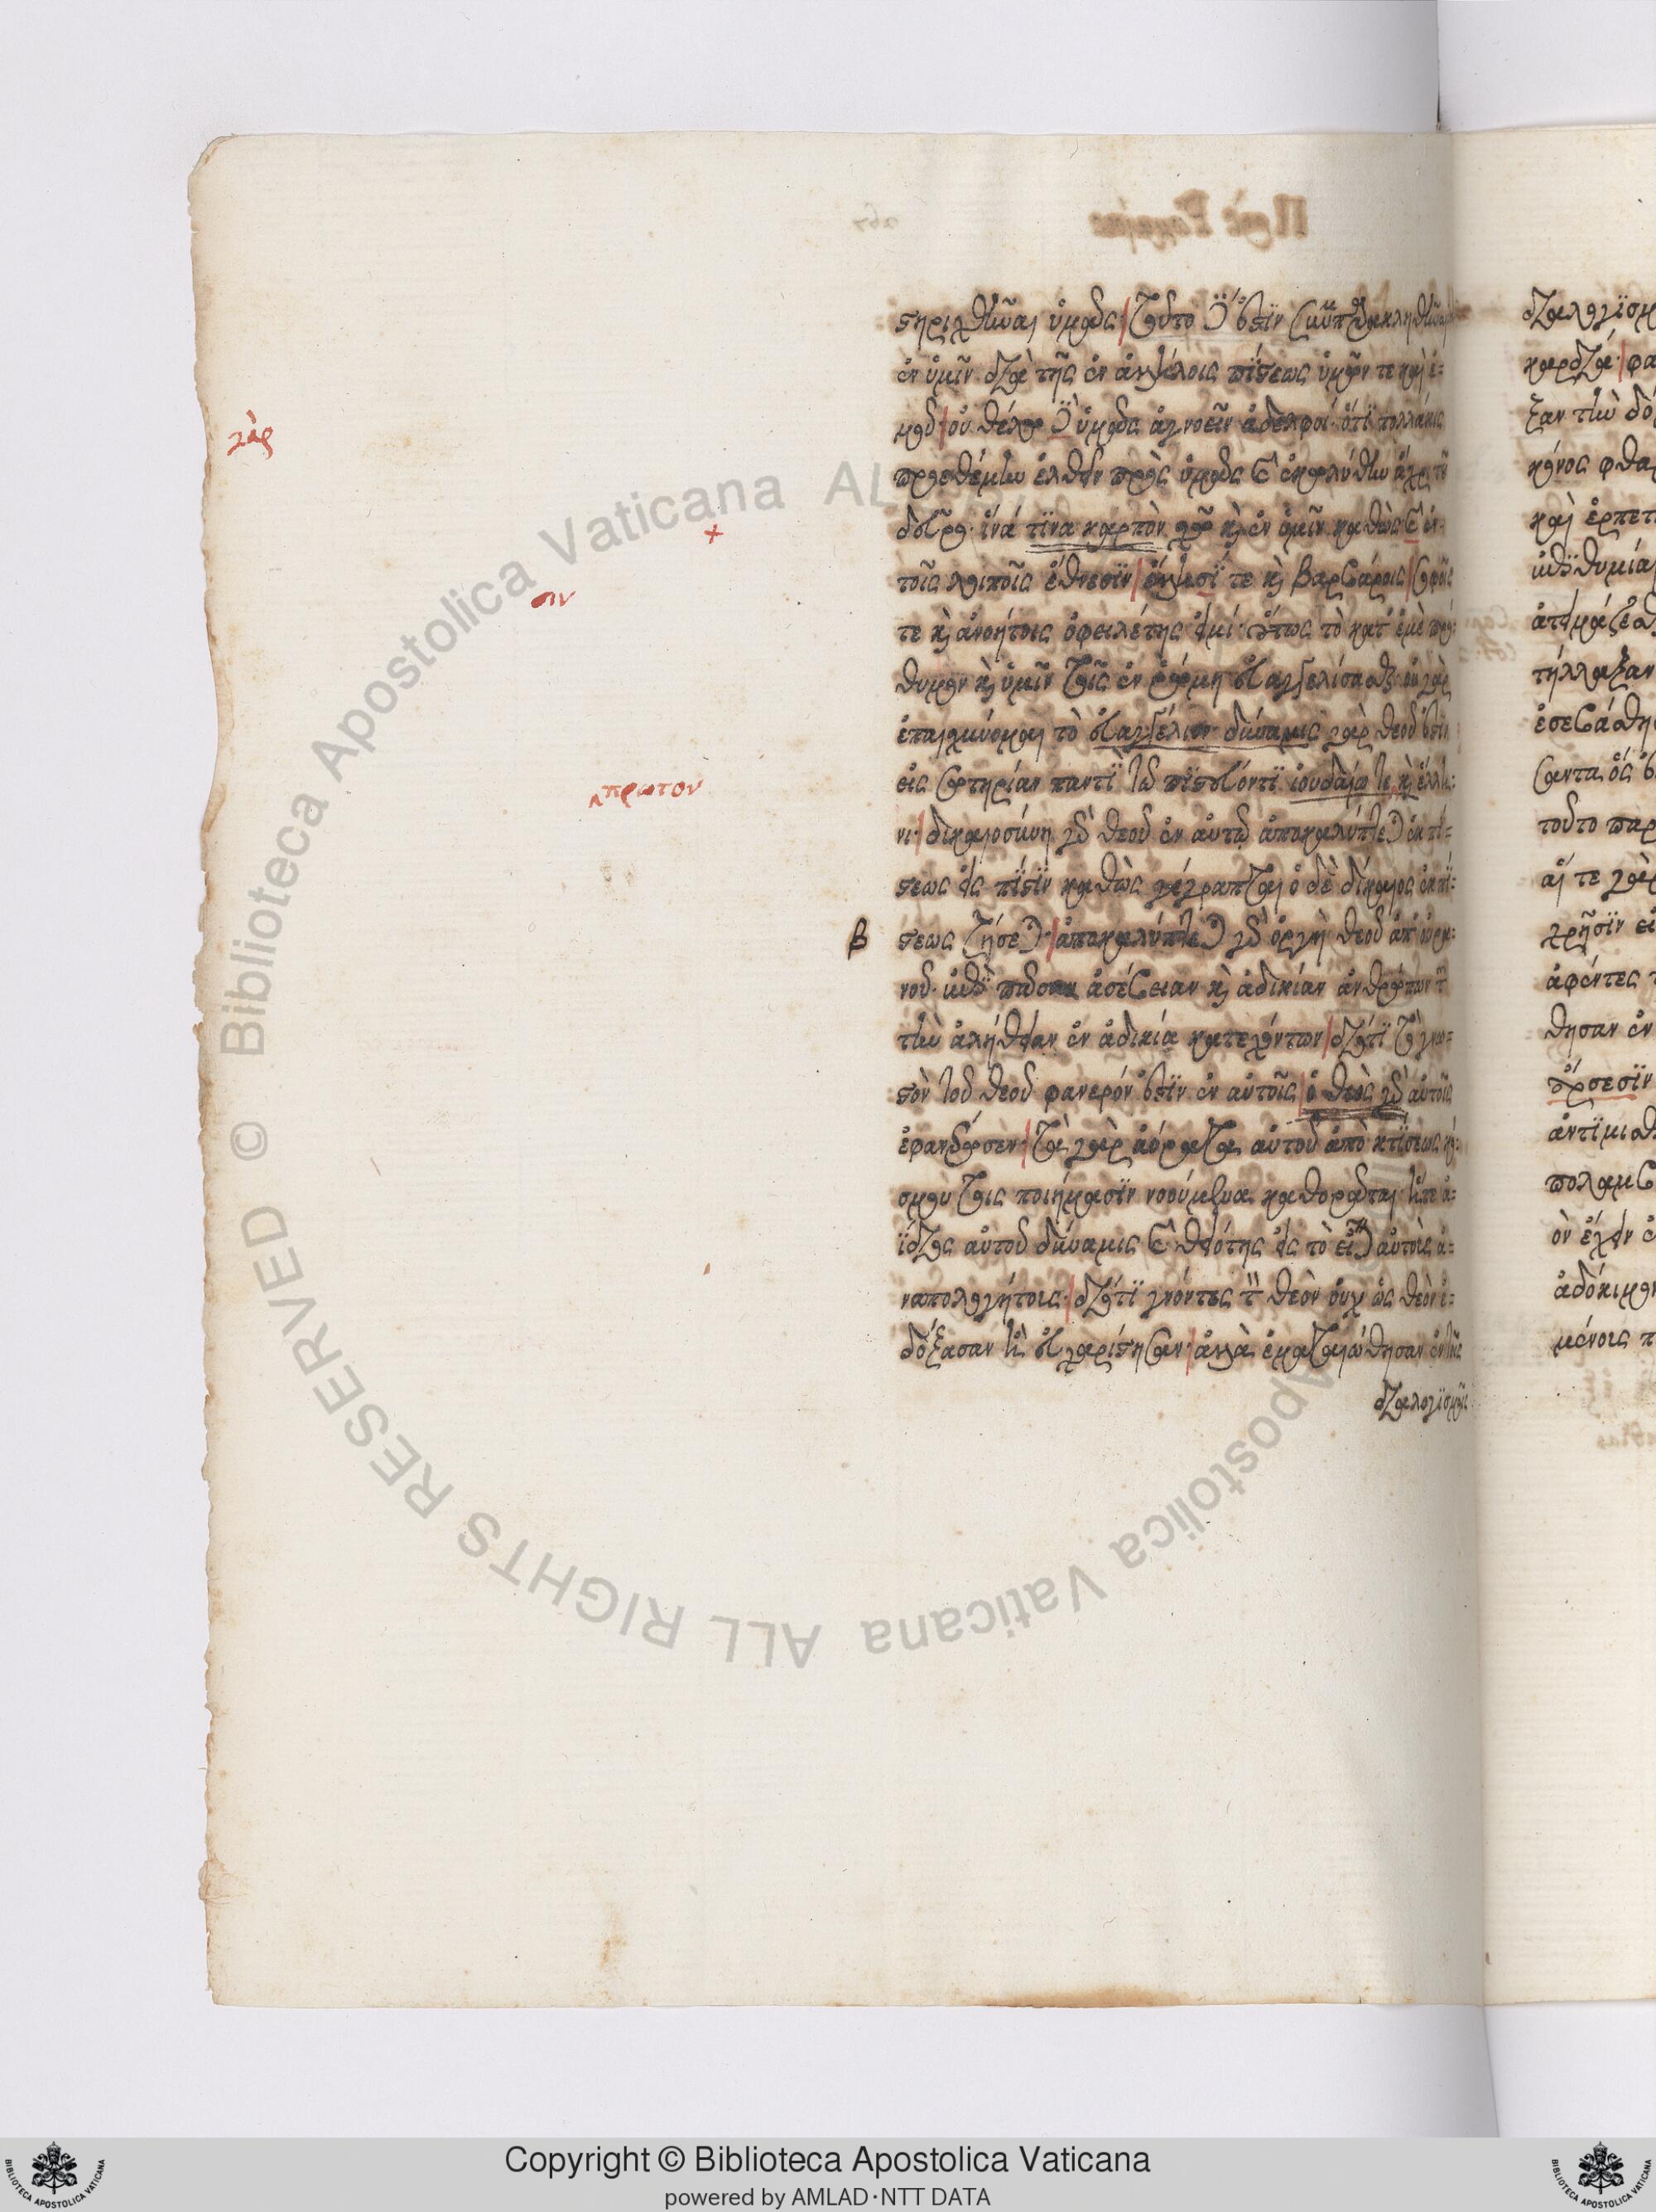 στηριχθῆναι ὑμᾶς· τοῦτο δέ ἐστϊν συμπαρακληθῆναι
ἐν ὑμῖν διὰ τῆς ἐν ἀλλήλοις πίστεως ὑμῶν τε καὶ ἐ-
μοῦ· οὐ θέλω δὲ ὑμᾶς ἀγνοεῖν ἀδελφοί· ὅτϊ πολλάκις
γὰρ
προεθέμην ἐλθεῖν πρὸς ὑμᾶς καὶ ἐκωλύθην ἄχρι τοῦ
δεῦρο· ἵνά τϊνα καρπὸν σχῶ καὶ ἐν ὑμῖν καθὼς καὶ ἐν
+
τοῖς λοιποῖς ἔθνεσϊν ἕλλησϊ τε καὶ βαρβάροις σοφοῖς
σιν
τε καὶ ἀνοήτοις ὀφειλέτης εἰμί· οὕτως τὸ κατ' ἐμὲ πρό-
θυμον καὶ ὑμῖν τοῖς ἐν ῥώμη εὐαγγελίσασθαι· οὐ γὰρ
ἐπαισχύνομαι τὸ εὐαγγέλιον· δύναμις γὰρ θεοῦ ἐστϊν
εἰς σωτηρίαν παντῒ τῶ πϊστεύοντϊ ἰουδαίω τε καὶ ἕλλη-
^πρωτον
νι· δικαιοσύνη γὰρ θεοῦ ἐν αὐτῷ ἀποκαλύπτεται ἐκ πί-
στεως εἰς πίστϊν καθὼς γέγραπται ὁ δὲ δίκαιος ἐκ πί-
β στεως ζήσεται· ἀποκαλύπτεται γὰρ ὀργὴ θεοῦ ἀπ' οὐρα-
νοῦ· ἐπὶ πᾶσαν ἀσέβειαν καὶ ἀδικίαν ἀνθρώπων τῶν
τὴν ἀλήθειαν ἐν ἀδικία κατεχόντων διότϊ τὸ γνω-
στὸν τοῦ θεοῦ φανερόν ἐστϊν ἐν αὐτοῖς ὁ θεὸς γὰρ αὐτοῖς
ἐφανέρωσεν· τὰ γὰρ ἀόρατα αὐτοῦ ἀπὸ κτίσεως κό-
σμου τοῖς ποιήμασϊν νοούμενα καθορᾶται· ἥτε ἀ-
ΐδιος αὐτοῦ δύναμις καὶ θειότης εἰς τὸ εἶναι αὐτοὺς ἀ-
ναπολογήτους· διότϊ γνόντες τὸν θεὸν οὐχ ὡς θεὸν ἐ-
δόξασαν ἢ εὐχαρίστησαν ἀλλὰ ἐματαιώθησαν ἐν τοῖς
διαλογϊσμοῖς
© Biblioteca Apostolica Vaticana ALL RIGHTS RESERVED
Copyright © Biblioteca Apostolica Vaticana
powered by AMLAD·NTT DATA